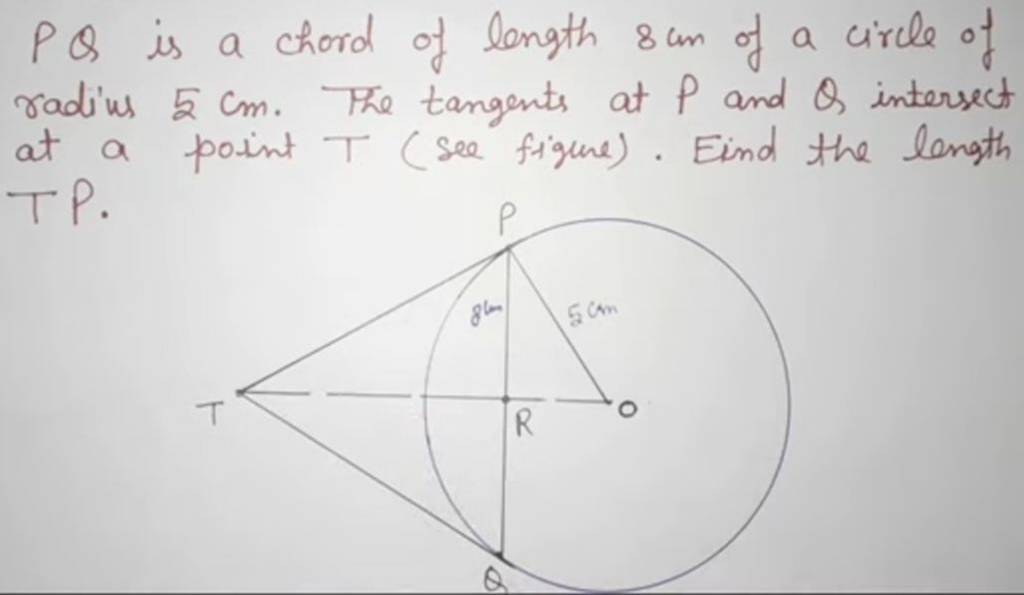 PQ is a chord of length 8 cm of a circle of
radius 5 cm. The tangents at P and Q intersect
at a point T (see figure). Find the length
TP.
P
8cm
5 cm
T
R
O
Q